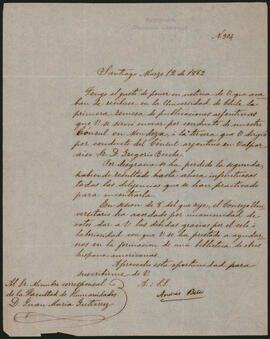 Nº 324
Santiago, Marzo 12 de 1862
Tengo el gusto de poner en noticia de V. que aca
ban de recibirse en la Universidad de Chile, la
primera remesa de publicaciones arjentinas
que V. se sirvió enviar por conducto de nuestro
Consul en Mendoza, i la tercera que V. dirijió
por conducto del Consul arjentino en Valpa-
raiso Sr. D. Gregorio Beeche.
Por desgracia se ha perdido la segunda,
habiendo resultado hasta ahora infructuosas
todas las dilijencias que se han practicado
para encontrarla.
En sesion de 8 del que rije, el Consejo Uni
versitario ha acordado por unanimidad de
votos dar a V. las debidas gracias por el celo i
laboriosidad con que V. se ha prestado a ayudar-
nos en la formacion de una biblioteca de obras
hispano americanas.
Aprovecho esta oportunidad para
suscribirme de V.
A. i S. S.
Andrés Bello
Al Sr. Miembro corresponsal
de la Facultad de Humanidades
D. Juan María Gutierrez